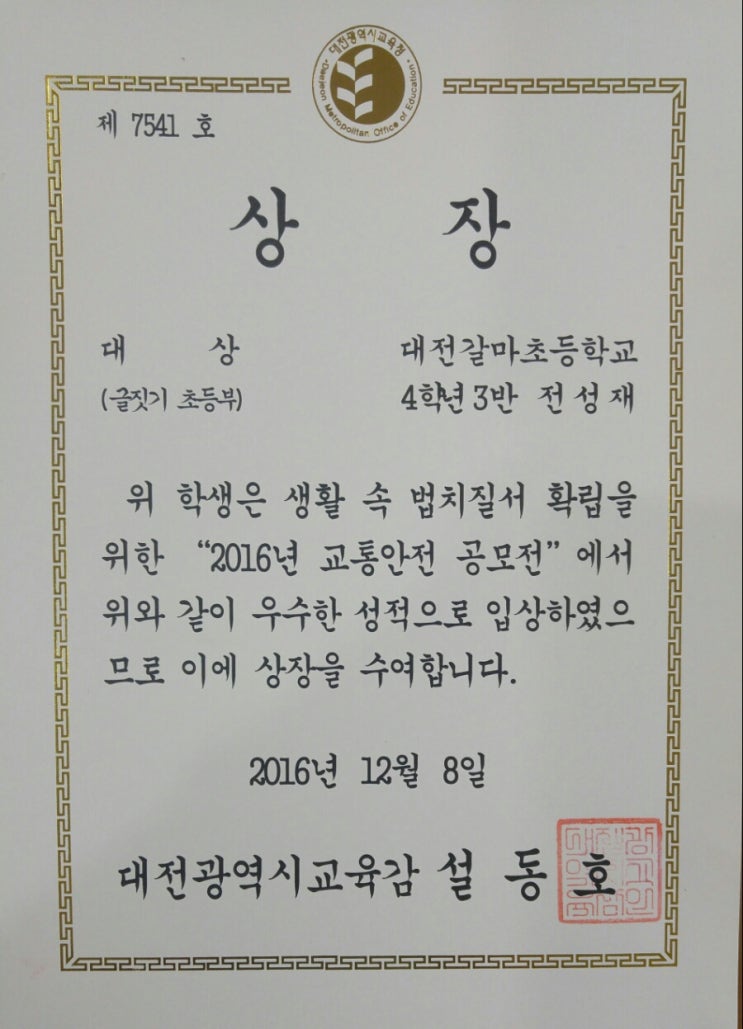 대전광역시교육청
Daejeon Metropolitan Office of Education
제 7541 호
상 장
대 상 대전갈마초등학교
(글짓기 초등부) 4학년 3반 전성재
위 학생은 생활 속 법치질서 확립을
위한 “2016년 교통안전 공모전” 에서
위와 같이 우수한 성적으로 입상하였으
므로 이에 상장을 수여합니다.
2016년 12월 8일
대전광역시교육감 설 동 호